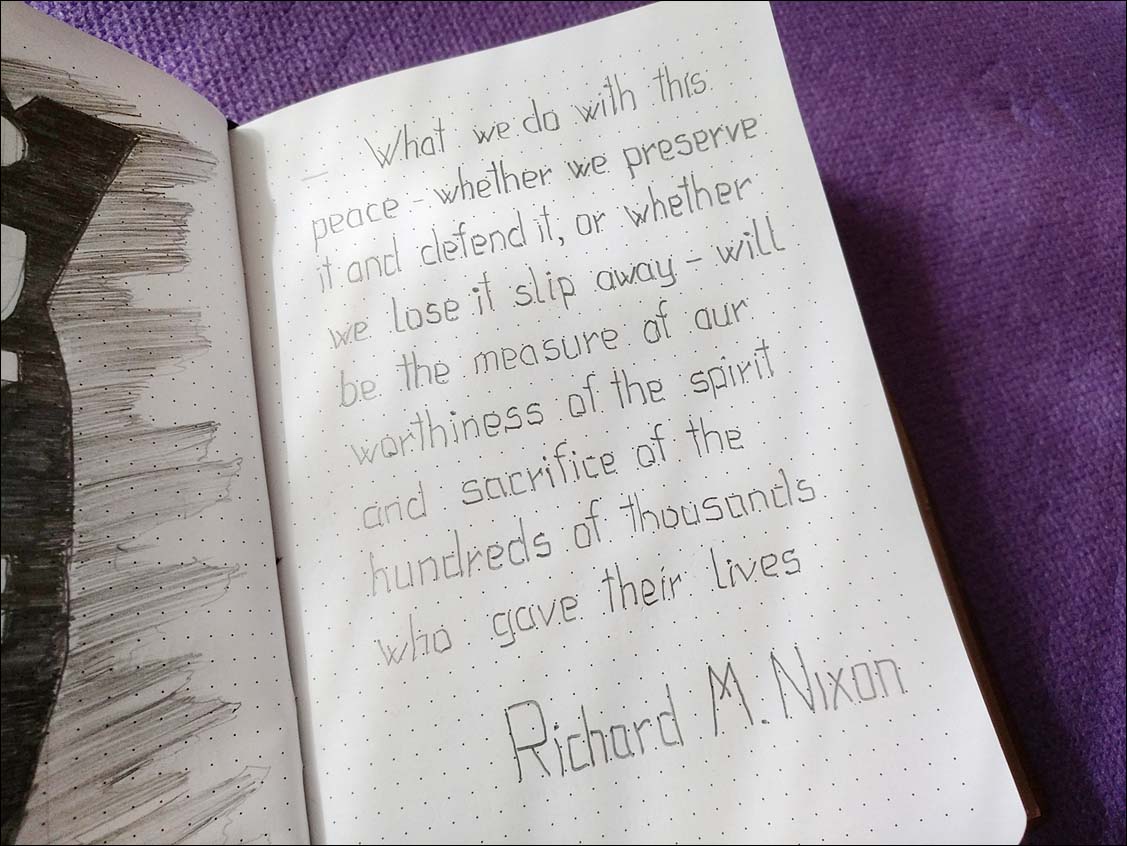 What we do with this
peace - whether we preserve
it and defend it, or whether
we lose it slip away - will
be the measure of our
worthiness of the spirit
and sacrifice of the
hundreds of thousands
who gave their lives
Richard M. Nixon